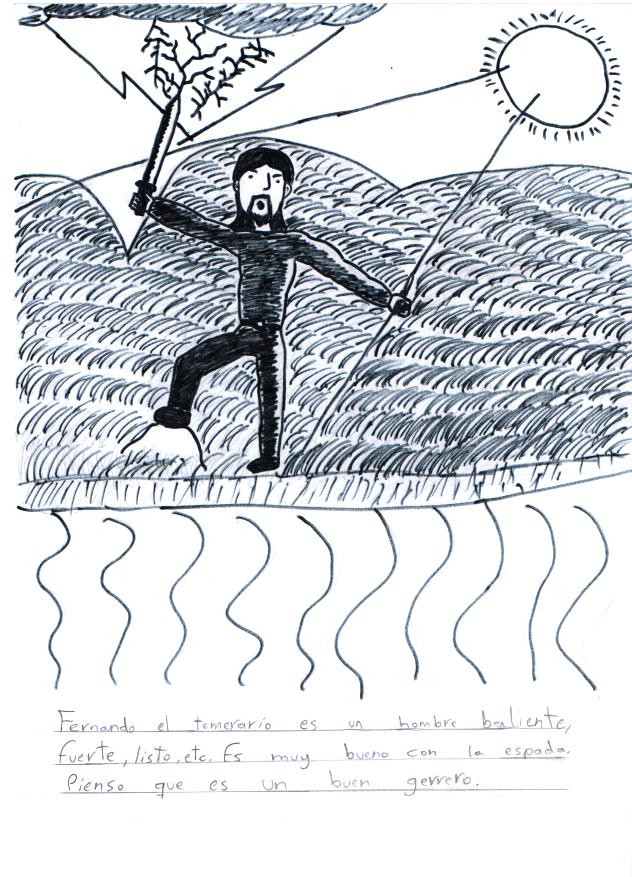 Fernando el temerario es un hombre baliente,
fuerte, listo, etc. Es muy bueno con la espada.
Pienso que es un buen gerrero.